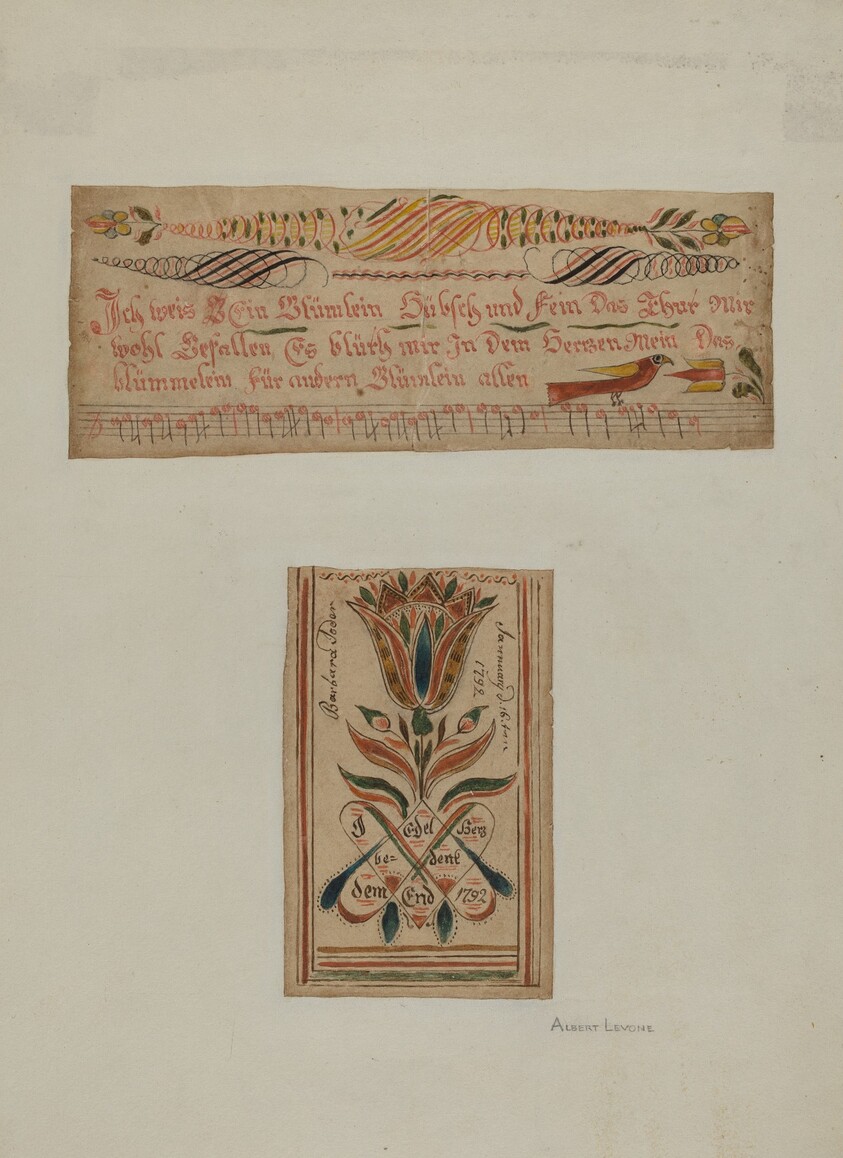 Ich weis Ein Blümlein Hübsch und Fein Das Thut Mir
wohl Gefallen Es blüth mir In Dem Hertzen Mein Das
blümmelein für andern Blümlein allen
Barbara Yoder
January D: 16. ten
1792
J Edel Herz
be= denk
dem End 1792
ALBERT LEVONE